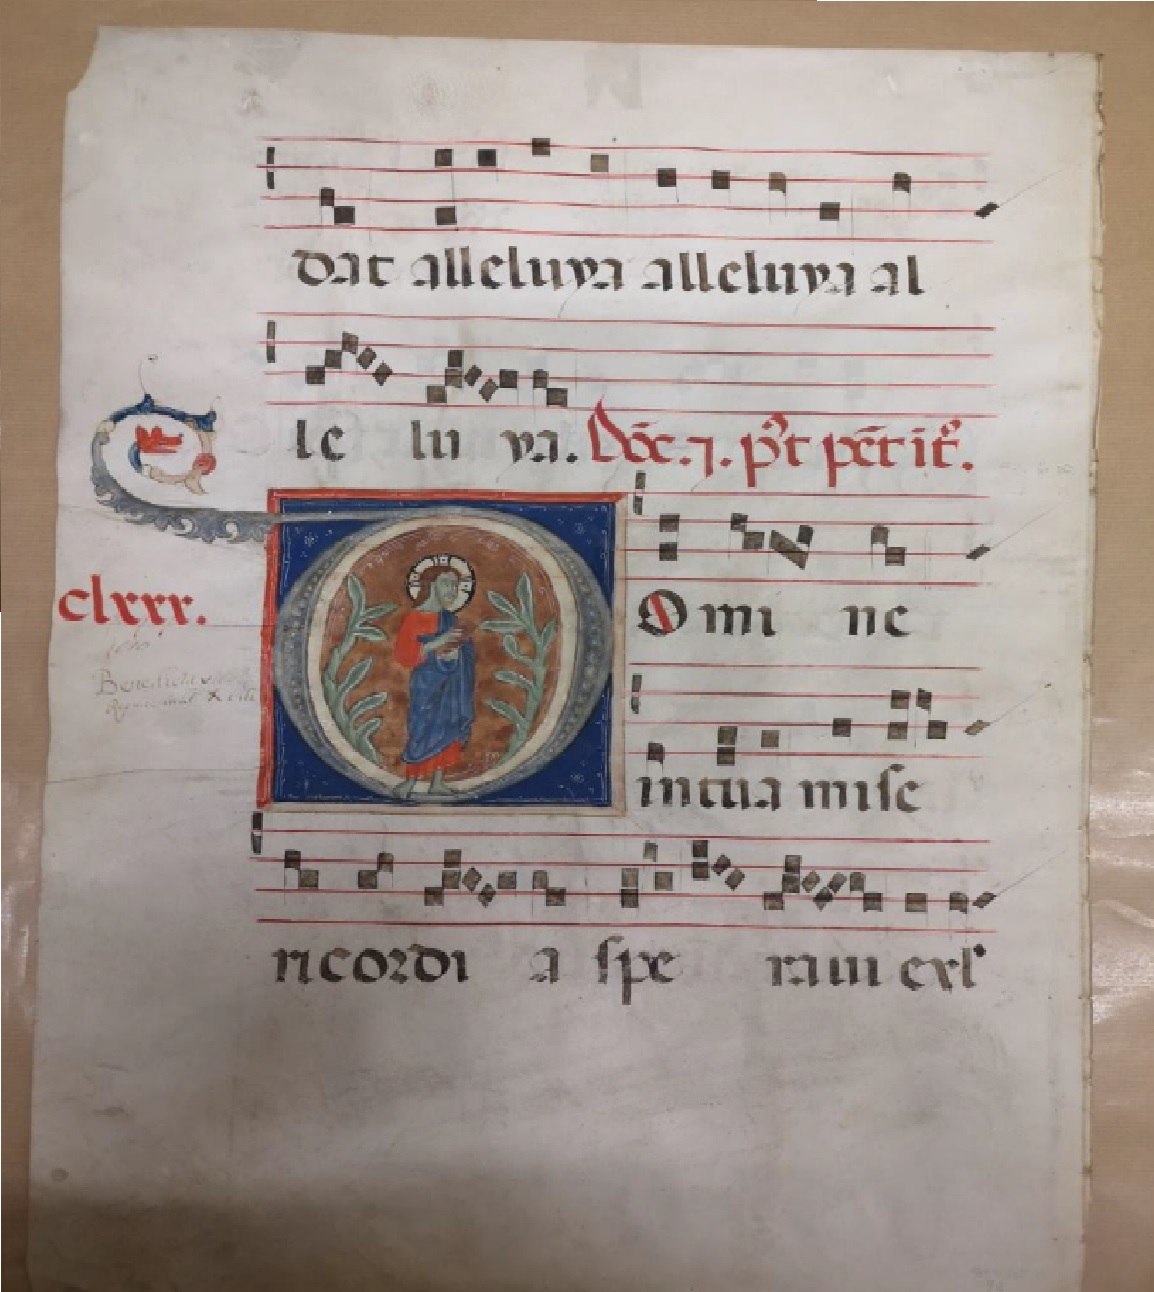 dat alleluya alleluya al
le lu ya. Dōc. ⁊. p̄t pēt it̄.
clxxx.
Domi ne
in tua mise
ricordi a spe raui exl'